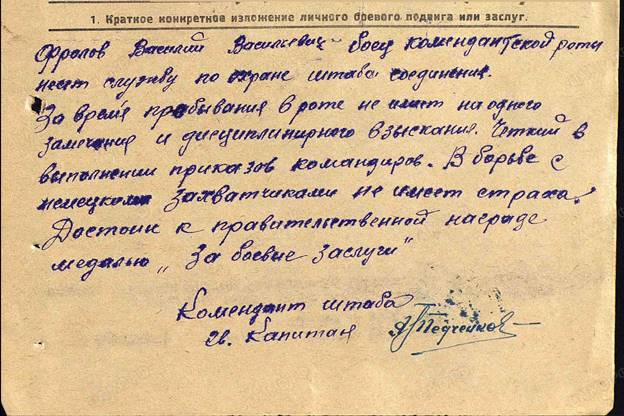 1. Краткое конкретное изложение личного боевого подвига или заслуг.
Фролов Василий Васильевич - боец комендантской роты
несет службу по охране штаба соединения.
За время пробывания в роте не имеет на одного
замечания и дисциплинарного взыскания. Четкий в
выполнении приказов командиров. В борьбе с
немецкими захватчиками не имеет страха.
Достоин к правительственной награде
медалью „За боевые заслуги"
Комендант штаба
гв. Капитан